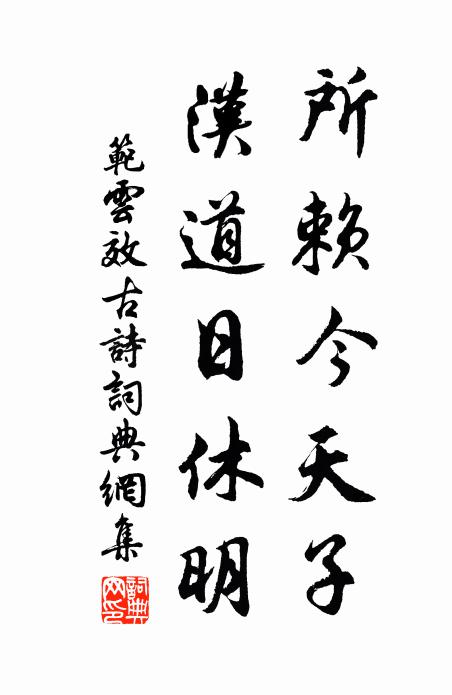 所賴今天子
漢道日休明
範雲效古詩詞典網集
詞典網印